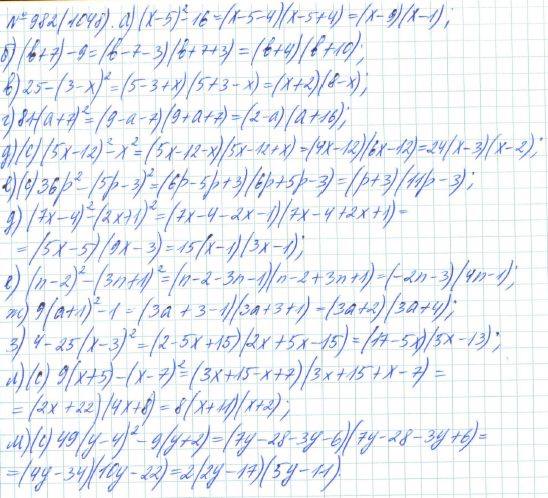 № 982(1045). а) (x-5)²-16=(x-5-4)(x-5+4)=(x-9)(x-1);
б) (b+7)-9=(b-7-3)(b+7+3)=(b+4)(b+10);
в) 25-(3-x)²=(5-3+x)(5+3-x)=(x+2)(8-x);
г) 81(a+7)²=(9-a-7)(9+a+7)=(2-a)(a+16);
д)(с)(5x-12)²-x²=(5x-12-x)(5x-12+x)=(4x-12)(6x-12)=24(x-3)(x-2);
е)(с)36p²-(5p-3)²=(6p-5p+3)(6p+5p-3)=(p+3)(11p-3);
д) (7x-4)²-(2x+1)²=(7x-4-2x-1)(7x-4+2x+1)=
=(5x-5)(9x-3)=15(x-1)(3x-1);
е) (n-2)²-(3n+1)²=(n-2-3n-1)(n-2+3n+1)=(-2n-3)(4n-1);
ж) 9(a+1)²-1=(3a+3-1)(3a+3+1)=(3a+2)(3a+4);
з) 4-25(x-3)²=(2-5x+15)(2x+5x-15)=(17-5x)(5x-13);
л)(с) 9(x+5)-(x-7)²=(3x+15-x+7)(3x+15+x-7)=
=(2x+22)(4x+8)=8(x+11)(x+2);
м)(с) 49(y-4)²-9(y+2)=(7y-28-3y-6)(7y-28-3y+6)=
=(4y-34)(10y-22)=2(2y-17)(5y-11).